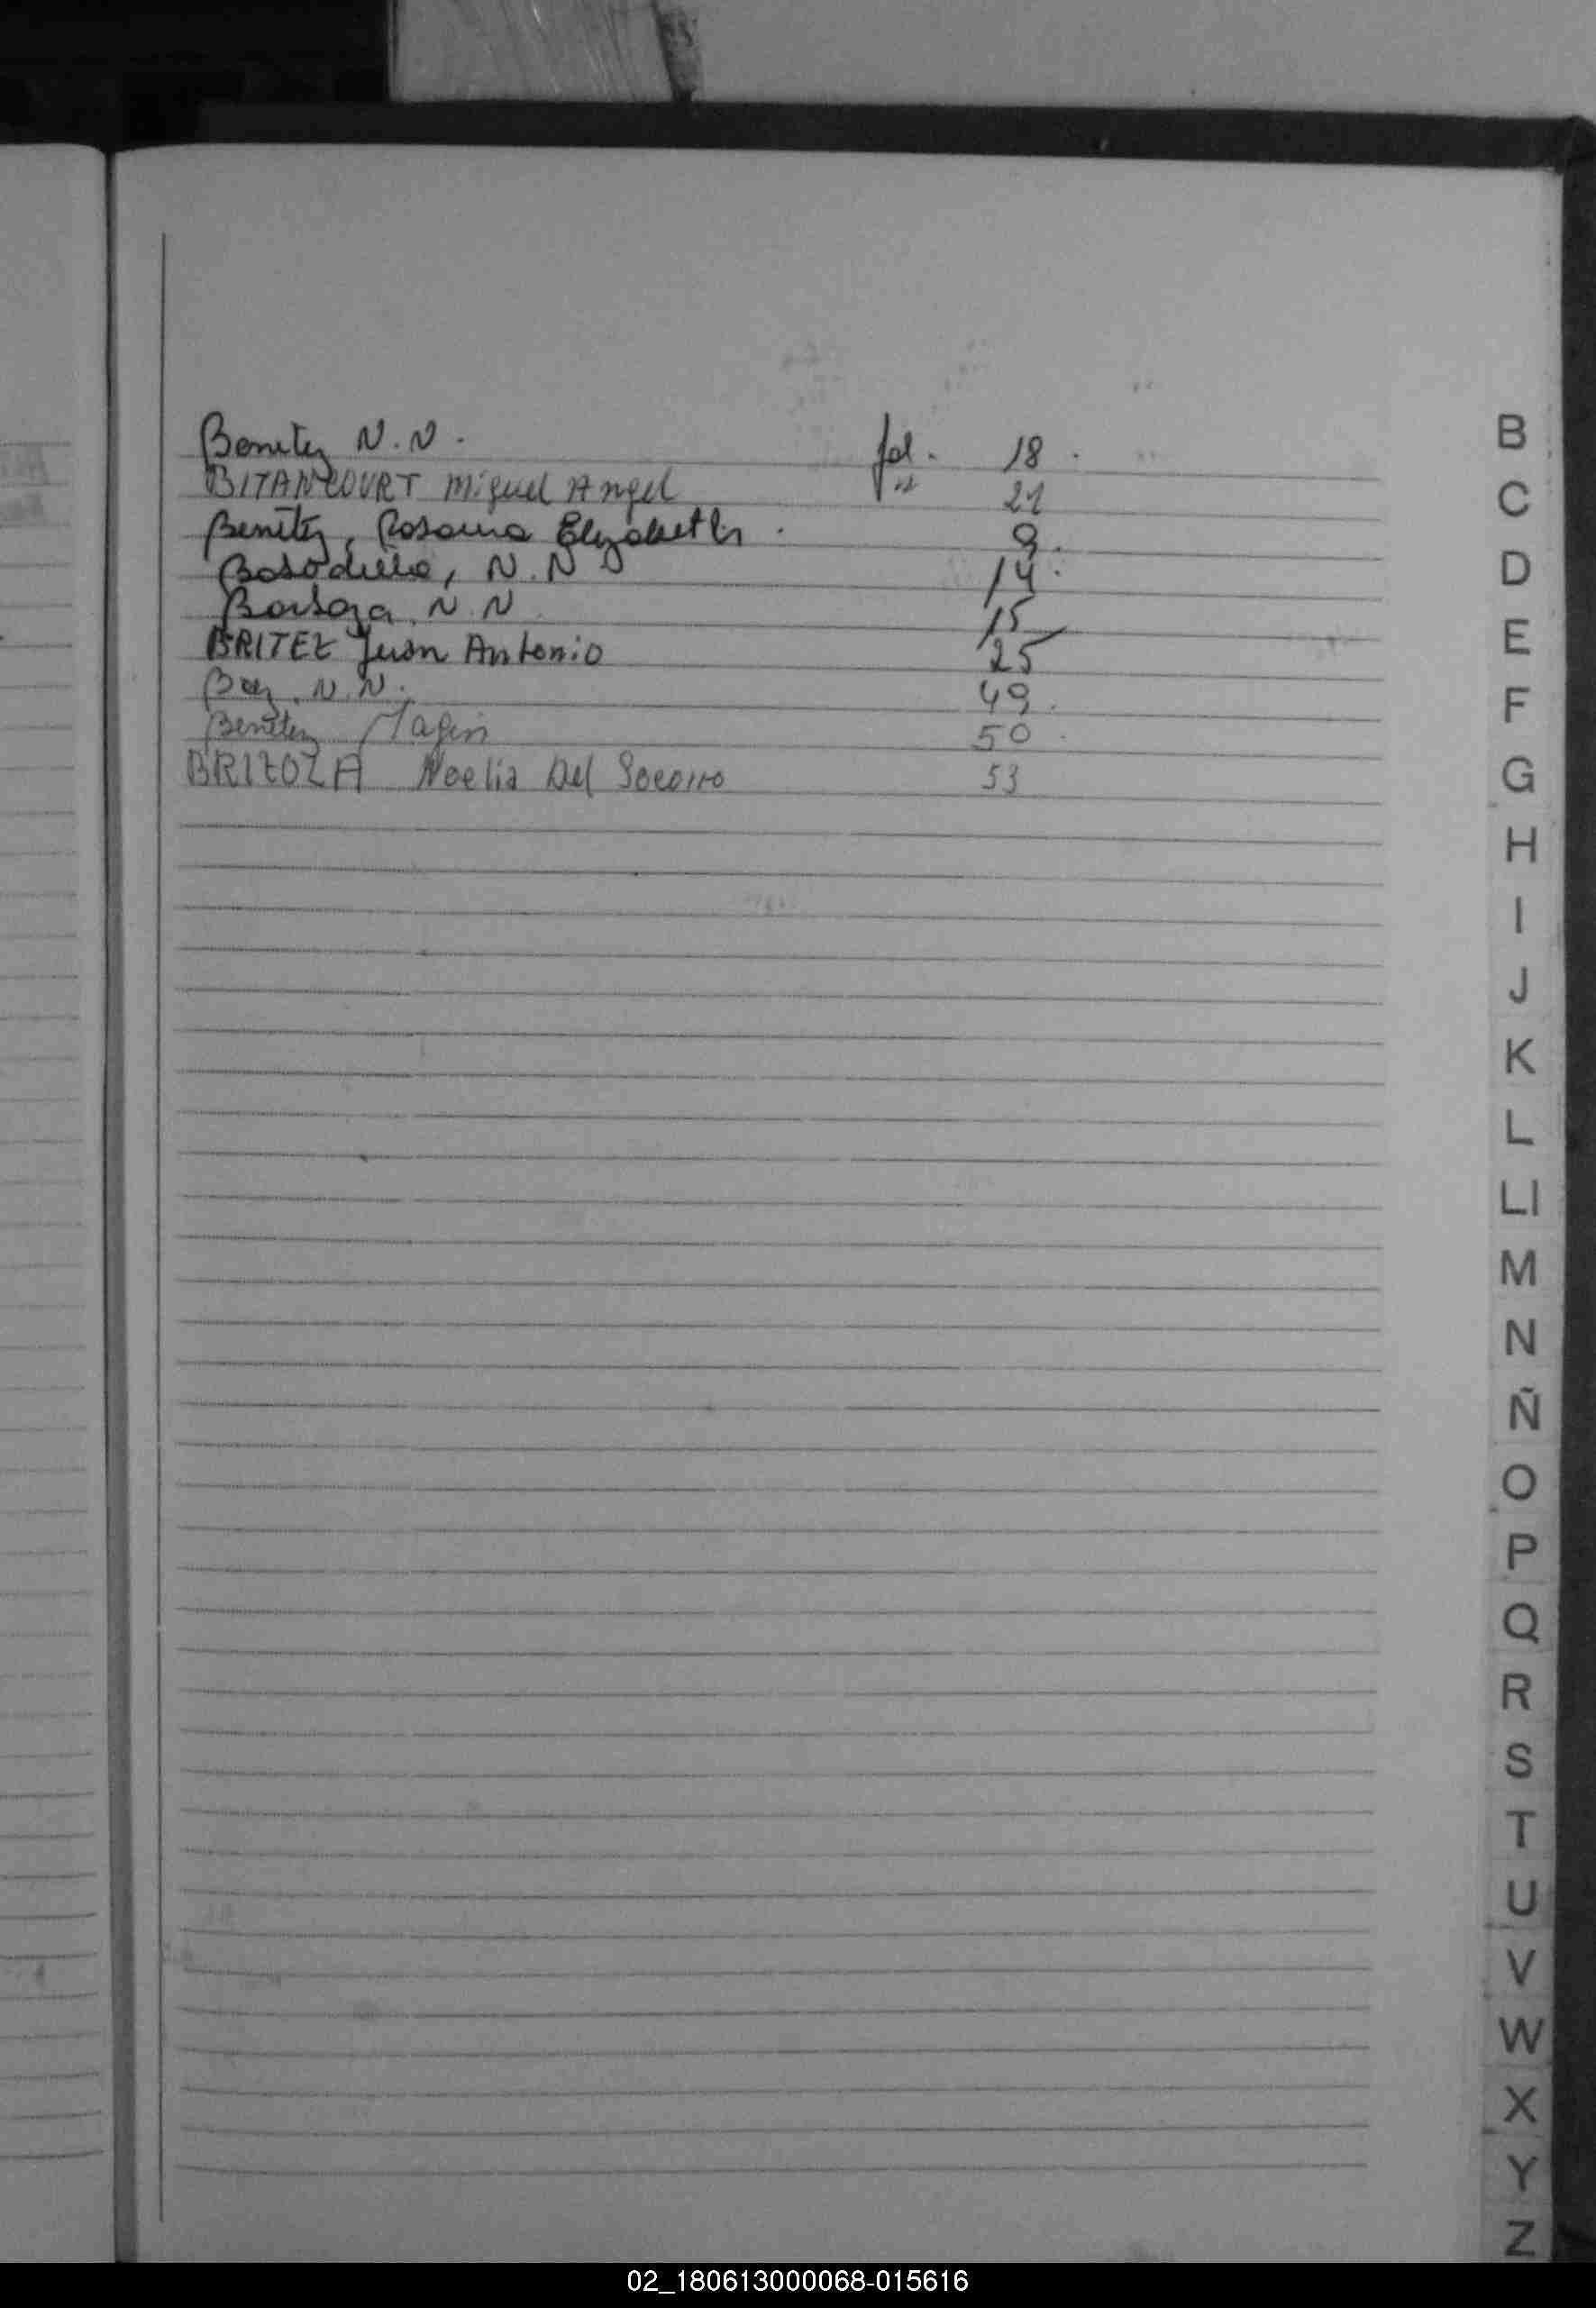 Benitez N.N. fol. 18.
BITANCOURT Miguel Angel " 21
Benitez, Rosana Elizabeth. 9.
Bobadilla, N.N 14.
Barboza, N.N 15
BRITEZ Juan Antonio 25
Baez, N.N. 49.
Benitez 50.
BRITOZA Noelia Del Socorro 53
B
C
D
E
F
G
H
I
J
K
L
Ll
M
N
Ñ
O
P
Q
R
S
T
U
V
W
X
Y
Z
02_180613000068-015616